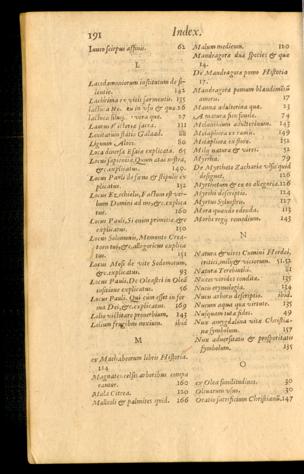 191 Index.
Iunco scirpus affinis. 62
L
Lacedæmoniorum institutum de silentio. 142
Lachrima ex vitis sarmentis. 155
Laurus 111
Levitarum statio Galaad. 88
Lignum Aloes. 80
Loca diversa Esaiæ explicata. 65
Locus sapientiæ, Quum atai nostra, &c. explicatus. 149.
Locus Pauli de fœno & stipulis explicatus. 152
Locus Ezechielis, Factum est verbum Domini ad me, &c. explicatus. 160
Locus Pauli, Si enim primitiæ, &c explicatus. 150
Locus Solomonis, Memento Creatoris tui, &c. allegoricus explicatus. 151
Locus Mosi de vite Sodomorum, &c. explicatus. 93
Locus Pauli, De Oleastri in Oleā insitione explicatus.
Locus Pauli, Qui cùm esset in forma Dei, &c. explicatus. 169
Lolio victitare proverbium. 143
Lolium frugibus noxium. ibid
M
ex Machabæorum libris Historia. 114
Magnates celsis arboribus comparantur. 160
Mala Citrea. 120
Malleoli & palmites quid. 166
Malum medicum. 120
Mandragoræ duæ species & quæ 14.
De Mandragoræ pomo Historia 17.
Mandragoræ pomum blandimētū amoris. 17
Manna adulterina quæ. 23
à natura sua sunt. 74
Melanthium adulterinum. 143
Metaphora ex ramis. 149
Metaphora ex rosis. 151
Milij natura & vires. 52
Myrrha. 79
De Myrtheto Zachariæ visa quid designet. 126
Myrthetum & ex eo allegoria. 126
Myrthi descriptio. 124
Myrtus Sylvestris. 127
Mora quando edenda. 113
Morbi regij remedium. 145
N
Natura & vires Cumini Hordei, tritici, milij & viciarum. 51.52
Natura Terebinthi. 81
Nuces virides condita. 135
Nucis etymologia. 134
Nucis arboris descriptio. ibid.
Nucum aqua quæ virtute. 135
Nusquam tuta fides. 49
Nux amygdalina vitæ Christianæ symbolum. 157
Nux adversitatis & prosperitatis symbolum. 155
O
ex Olea similitudines. 30
Olivarum usus. 30
Oratio sacrificium Christianū. 147